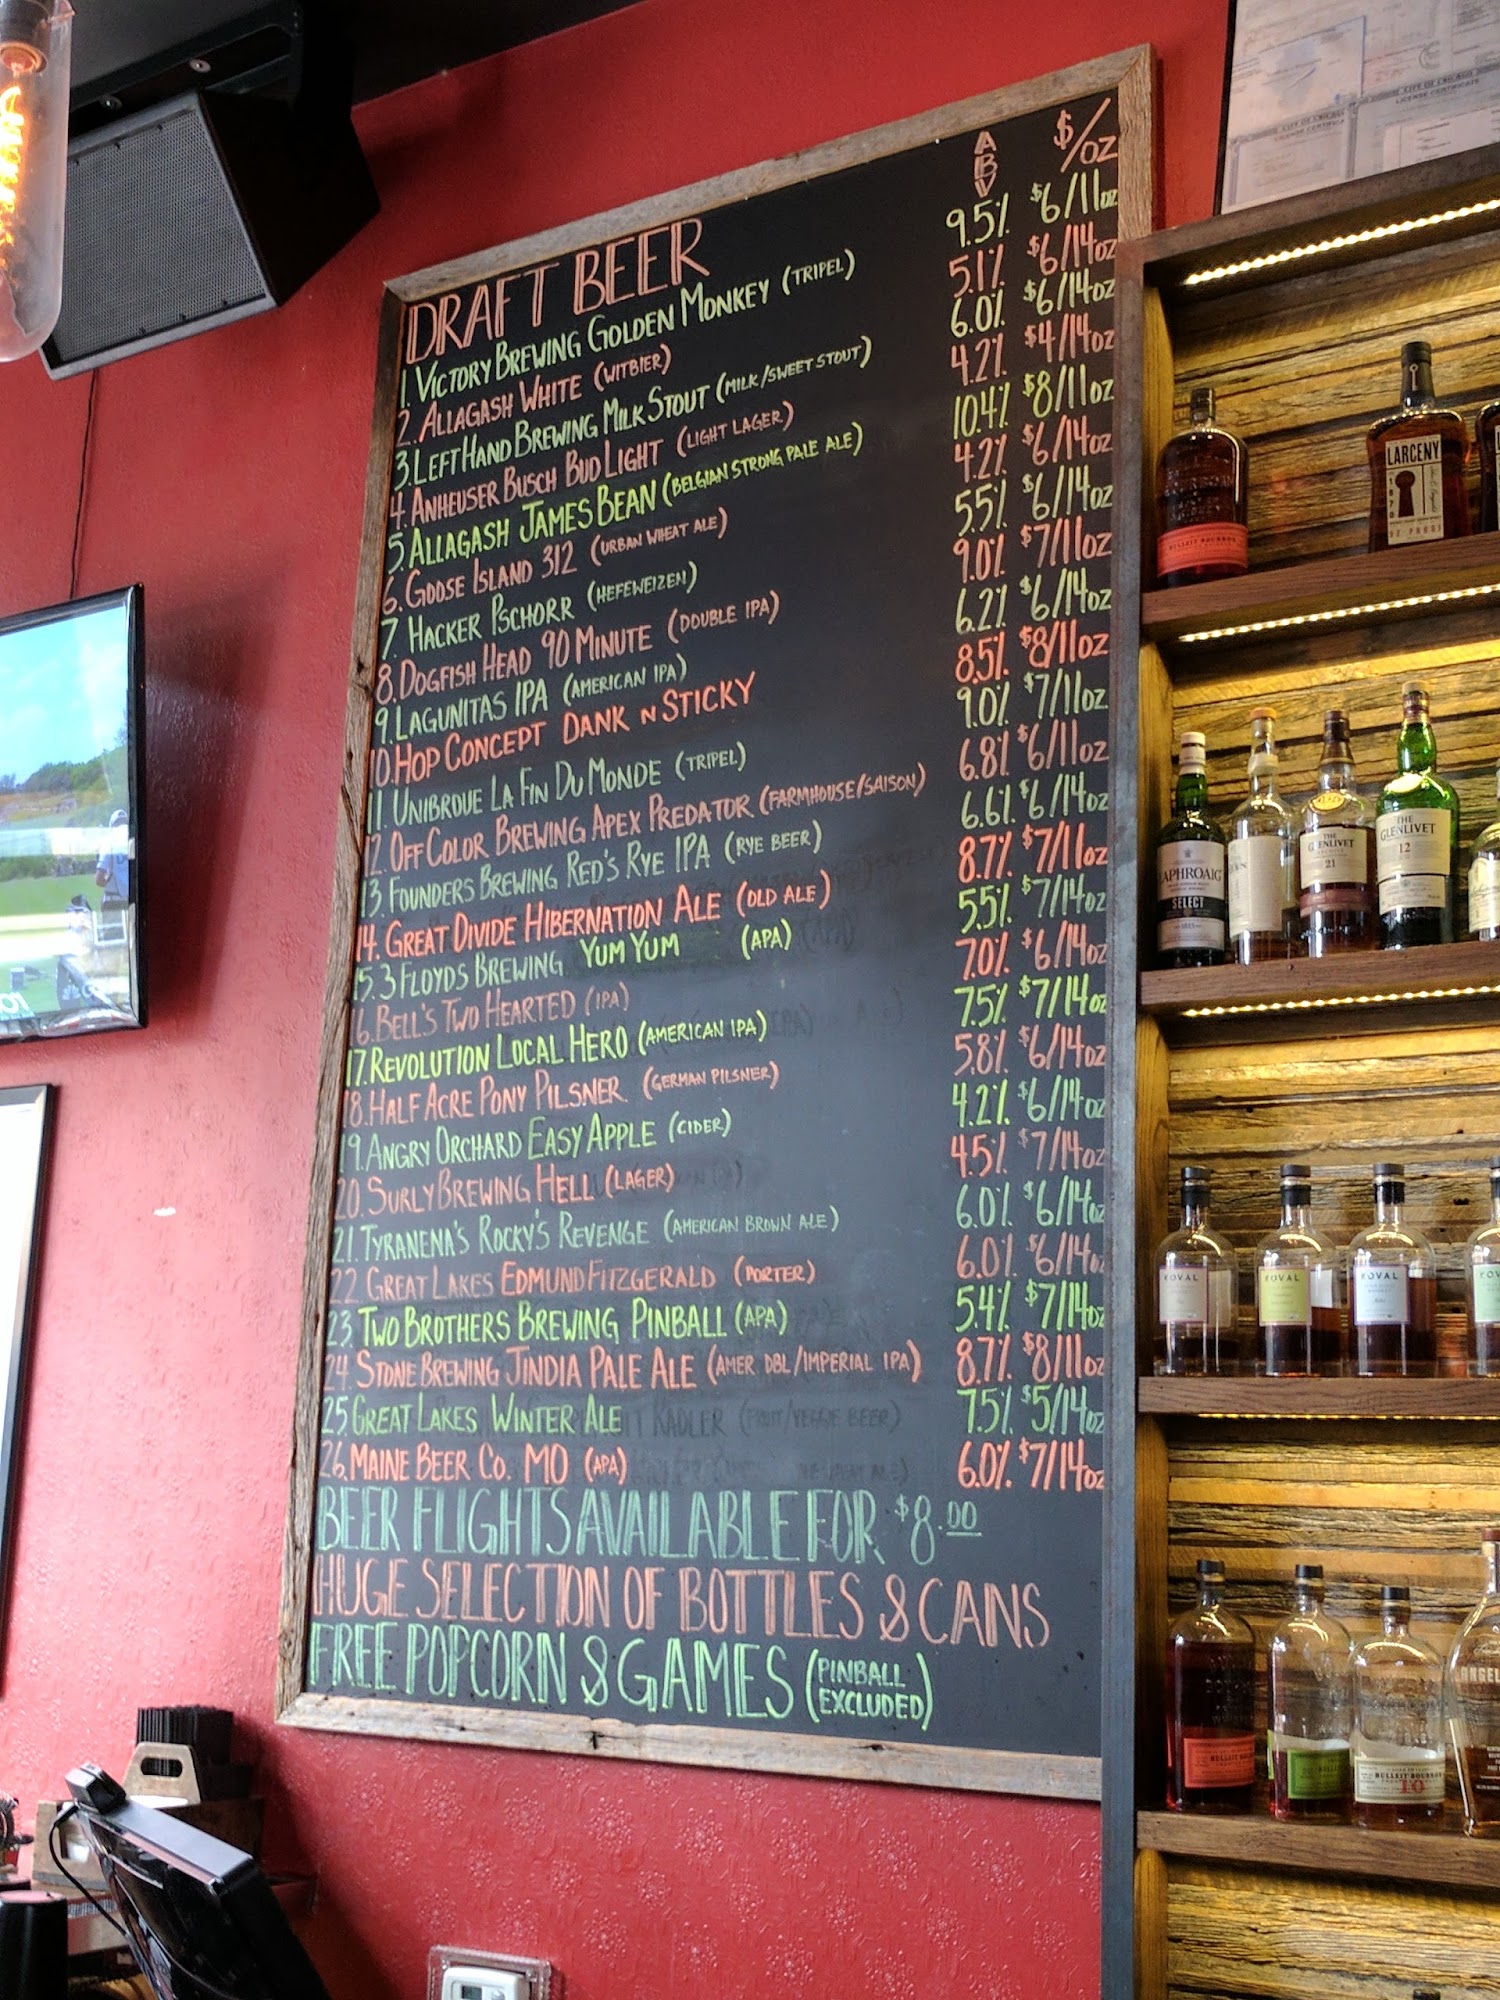 CITY OF CHICAGO
LICENSE CERTIFICATE
A
B
V
$/OZ
DRAFT BEER
1. VICTORY BREWING GOLDEN MONKEY (TRIPEL) 9.5% $6/11OZ
2. ALLAGASH WHITE (WITBIER) 5.1% $6/14OZ
3. LEFT HAND BREWING MILK STOUT (MILK/SWEET STOUT) 6.0% $6/14OZ
4. ANHEUSER BUSCH BUD LIGHT (LIGHT LAGER) 4.2% $4/14OZ
5. ALLAGASH JAMES BEAN (BELGIAN STRONG PALE ALE) 10.4% $8/11OZ
6. GOOSE ISLAND 312 (URBAN WHEAT ALE) 4.2% $6/14OZ
7. HACKER PSCHORR (HEFEWEIZEN) 5.5% $6/14OZ
8. DOGFISH HEAD 90 MINUTE (DOUBLE IPA) 9.0% $7/11OZ
9. LAGUNITAS IPA (AMERICAN IPA) 6.2% $6/14OZ
10. HOP CONCEPT DANK N STICKY 8.5% $8/11OZ
11. UNIBROUE LA FIN DU MONDE (TRIPEL) 9.0% $7/11OZ
12. OFF COLOR BREWING APEX PREDATOR (FARMHOUSE/SAISON) 6.8% $6/11OZ
13. FOUNDERS BREWING RED'S RYE IPA (RYE BEER) 6.6% $6/14OZ
14. GREAT DIVIDE HIBERNATION ALE (OLD ALE) 8.7% $7/11OZ
15. 3 FLOYDS BREWING YUM YUM (APA) 5.5% $7/14OZ
16. BELL'S TWO HEARTED (IPA) 7.0% $6/14OZ
17. REVOLUTION LOCAL HERO (AMERICAN IPA) 7.5% $7/14OZ
18. HALF ACRE PONY PILSNER (GERMAN PILSNER) 5.8% $6/14OZ
19. ANGRY ORCHARD EASY APPLE (CIDER) 4.2% $6/14OZ
20. SURLY BREWING HELL (LAGER) 4.5% $7/14OZ
21. TYRANENA'S ROCKY'S REVENGE (AMERICAN BROWN ALE) 6.0% $6/14OZ
22. GREAT LAKES EDMUND FITZGERALD (PORTER) 6.0% $6/14OZ
23. TWO BROTHERS BREWING PINBALL (APA) 5.4% $7/14OZ
24. STONE BREWING JINDIA PALE ALE (AMER DBL/IMPERIAL IPA) 8.7% $8/11OZ
25. GREAT LAKES WINTER ALE 7.5% $5/14OZ
26. MAINE BEER CO. MO (APA) 6.0% $7/14OZ
BEER FLIGHTS AVAILABLE FOR $8.00
HUGE SELECTION OF BOTTLES & CANS
FREE POPCORN & GAMES (PINBALL EXCLUDED)
BULLEIT BOURBON
LARCENY
1870
92 PROOF
LAPHROAIG
SELECT
THE
GLENLIVET
21
THE
GLENLIVET
12
KOVAL
KOVAL
KOVAL
BULLEIT BOURBON
10